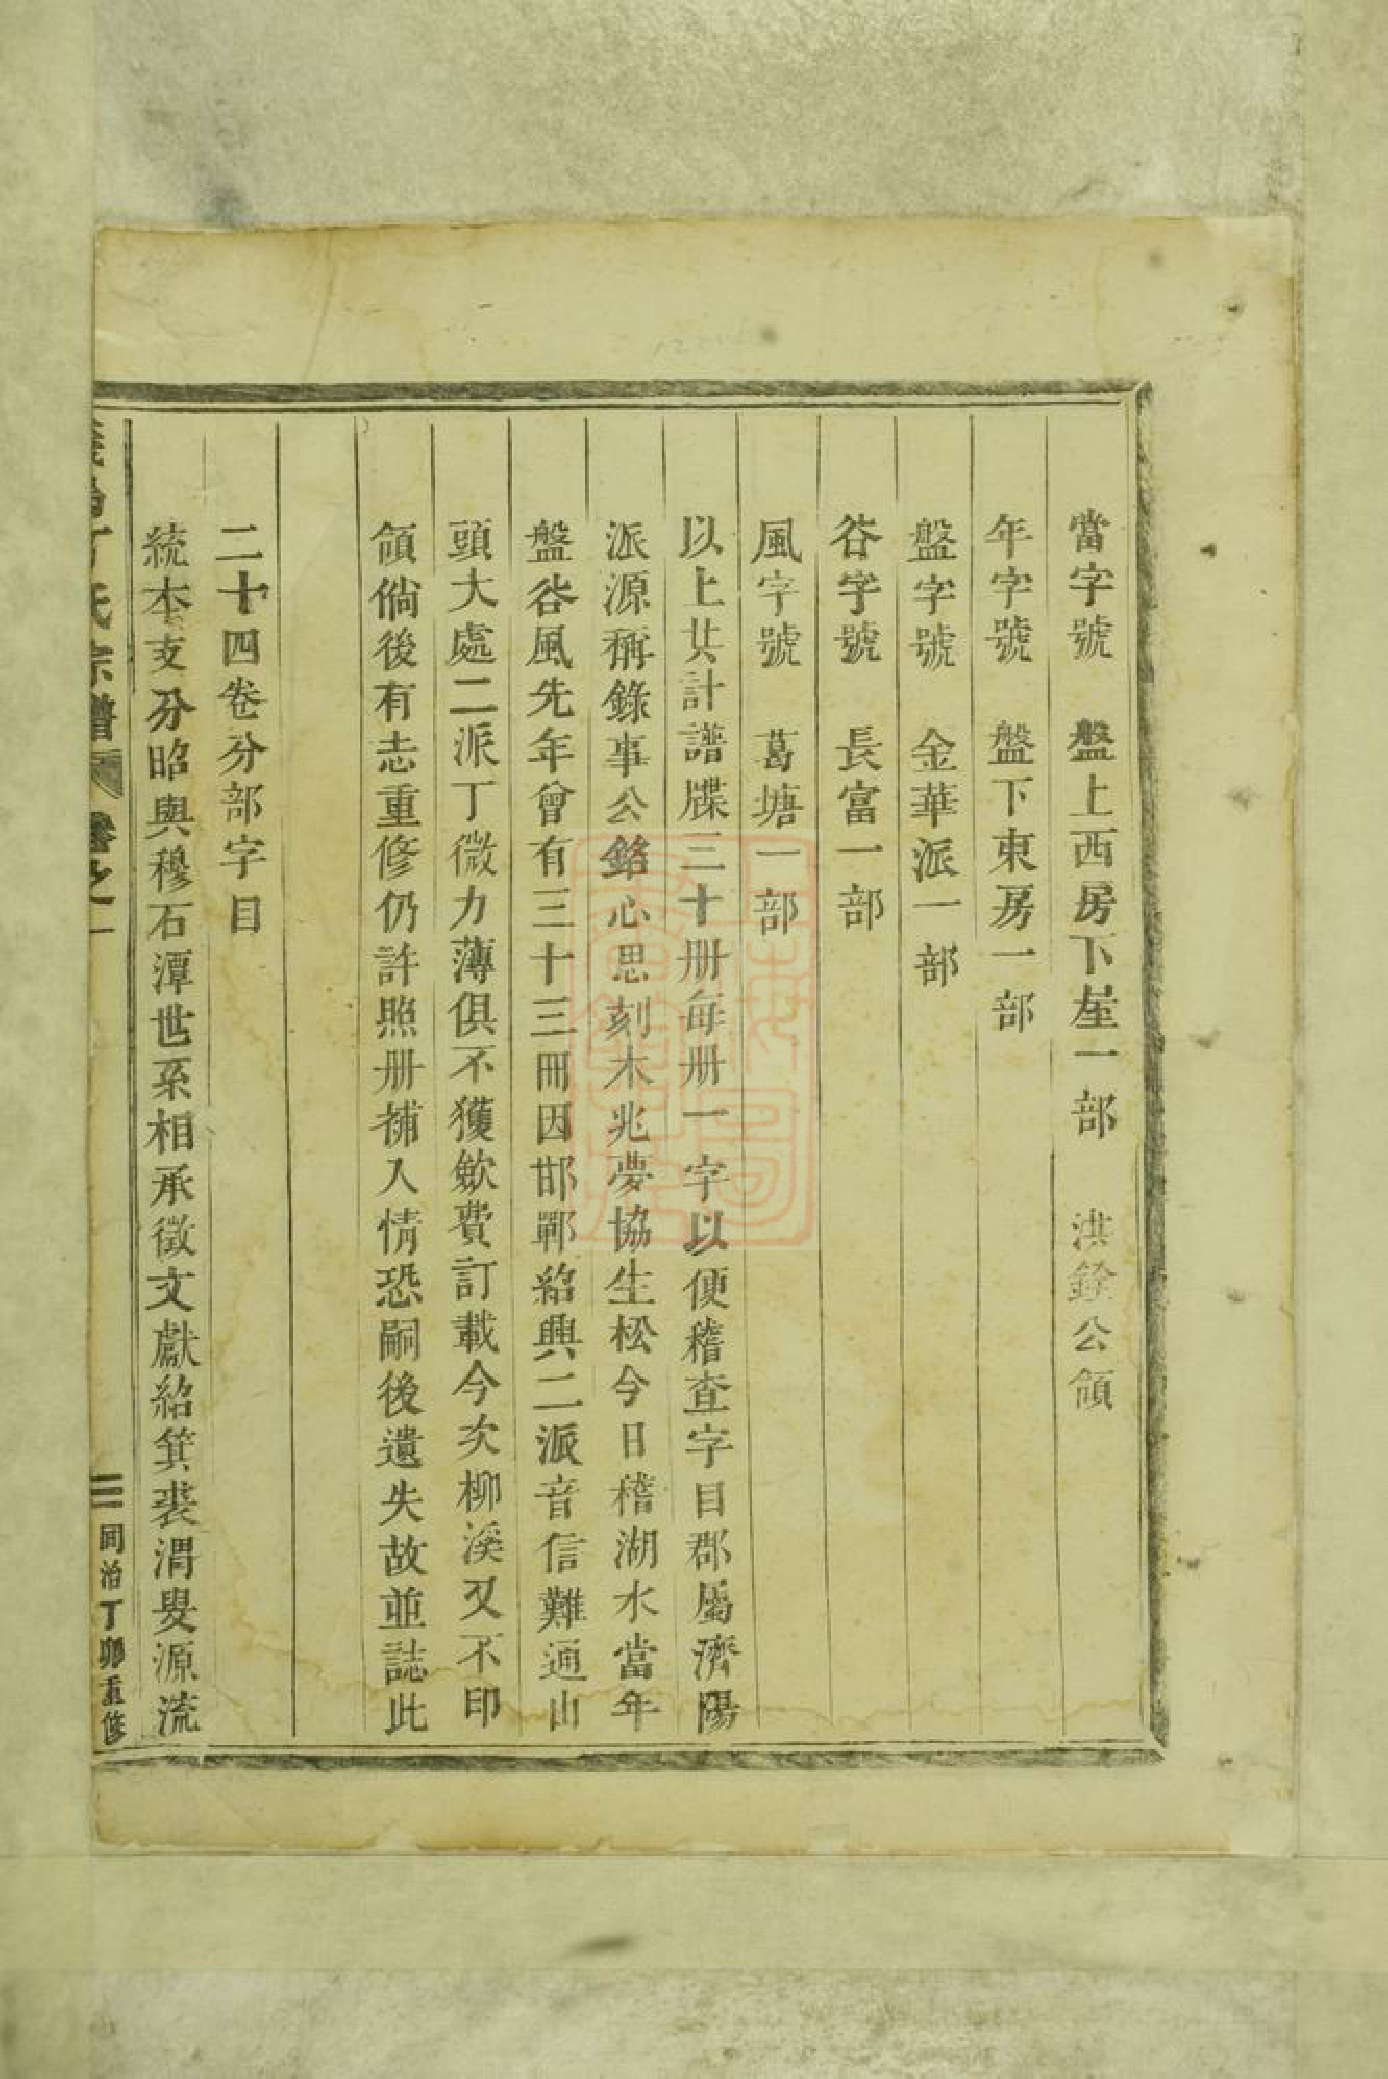 當字號　盤上西房下屋一部　洪銓公領
年字號　盤下東房一部
盤字號　金華派一部
谷字號　長富一部
風字號　葛塘一部
以上共計譜牒二十册每册一字以便稽查字目郡屬濟陽
派源稱錄事公銘心思刻木兆夢協生松今日稽湖水當年
盤谷風先年曾有三十三冊因邯鄲紹興二派音信難通山
頭大處二派丁微力薄俱不獲歛費訂載今次柳溪又不印
領倘後有志重修仍許照册補入情恐嗣後遺失故並誌此
二十四卷分部字目
統本支分昭與穆石潭世系相承徵文獻紹箕裘渭叟源流
丁氏宗譜　卷之一　二　同治丁卯重修